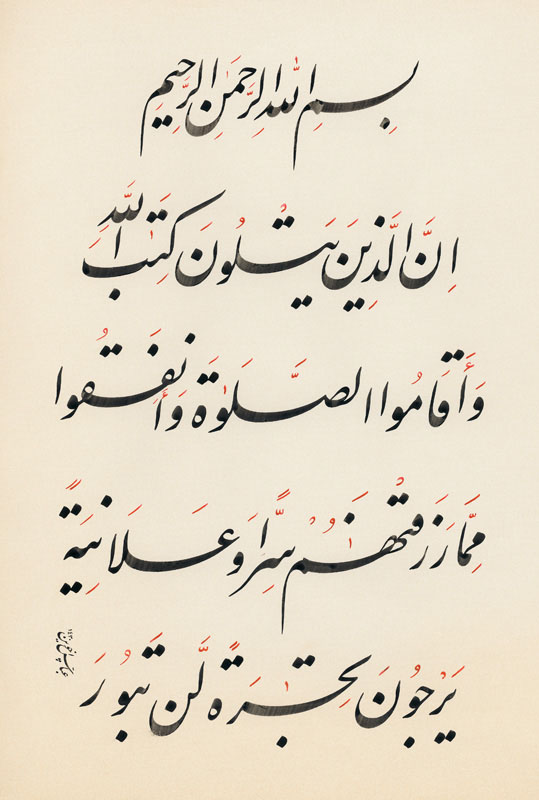 بسم الله الرحمن الرحیم
اِنَّ الَّذِینَ یَتْلُونَ کِتَٰبَ اللَّهِ
وَأَقَامُوا الصَّلَوٰةَ وَأَنفَقُوا
مِمَّا رَزَقْنَٰهُمْ سِرًّا وَعَلَانِیَةً
یَرْجُونَ تِجَٰرَةً لَّن تَبُورَ